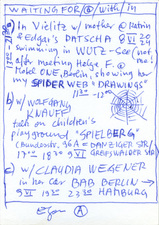 WAITING FOR / @ with / in
a) in Vielitz w/ mother @ Katrin
& Edgar's DATSCHA 8 VI 2024
swimming in WUTZ-See (not me!
after meeting Helge F. @
Hotel ONE, Berlin, showing her
my SPIDER WEB "DRAWINGS"
11 - 12
b) w/ WOLFGANG
KNAUFF
talk on children's
playground "SPIELBERG"
(Bundesstr. 96A = DANZIGER STR/
17 18 30 9 VI GREIFSWALDER STR
c) w/ CLAUDIA WEGENER
in her car BAB BERLIN →
9 VI 19 23 30 HAMBURG
A